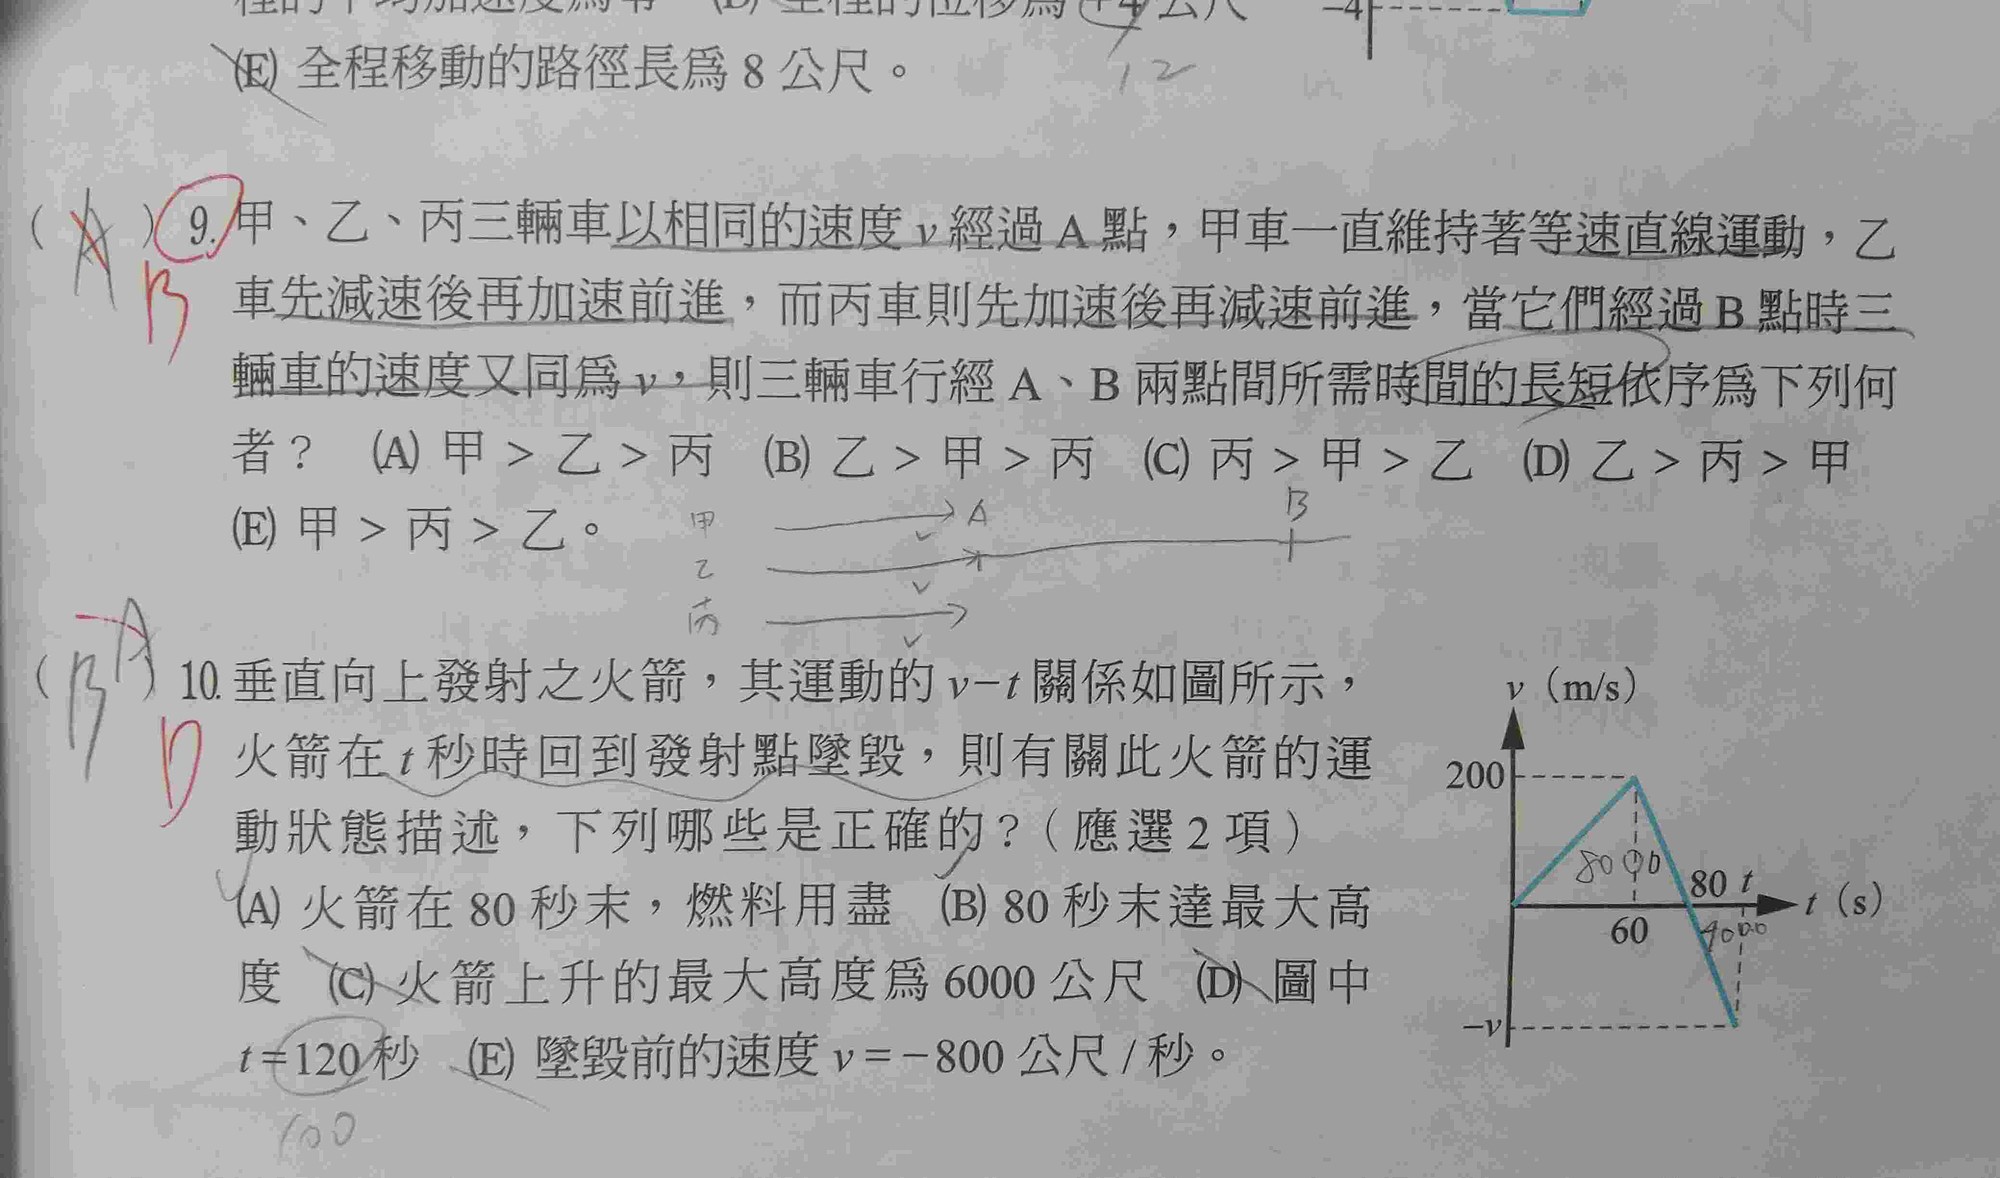 程的平均加速度為零 (D) 全程的位移為 +4 公尺
-4
(E) 全程移動的路徑長為 8 公尺。
12
(A) 9. 甲、乙、丙三輛車以相同的速度 v 經過 A 點，甲車一直維持著等速直線運動，乙
B
車先減速後再加速前進，而丙車則先加速後再減速前進，當它們經過 B 點時三
輛車的速度又同為 v，則三輛車行經 A、B 兩點間所需時間的長短依序為下列何
者？ (A) 甲 > 乙 > 丙 (B) 乙 > 甲 > 丙 (C) 丙 > 甲 > 乙 (D) 乙 > 丙 > 甲
(E) 甲 > 丙 > 乙。
甲 v A B
乙 v
丙 v
(BA) 10. 垂直向上發射之火箭，其運動的 v-t 關係如圖所示，
D
火箭在 t 秒時回到發射點墜毀，則有關此火箭的運
動狀態描述，下列哪些是正確的？（應選 2 項）
(A) 火箭在 80 秒末，燃料用盡 (B) 80 秒末達最大高
度 (C) 火箭上升的最大高度為 6000 公尺 (D) 圖中
t=120 秒 (E) 墜毀前的速度 v=-800 公尺 / 秒。
100
v（m/s）
200
8000
80 t
t（s）
60
-v